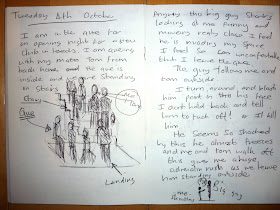 Tuesday 8th October
I am in a que for
an opening night for a new
club in Leeds. I am queing
with my mate Tom from
back home and the que is
inside and we are standing
on stairs
Door
Que
Landing
Anyway this big guy starts
looking at me funny and
moving really close I feel
he is invading my space
I feel so uncomfortable
that I leave the que
The guy follows me and
tom outside
I turn around and blast
him peak in the face
I don't hold back and tell
him to fuck off! or I'll kill
him
He seems so shocked
by this he almost freezes
and me and tom walk off
this give me a huge
adrenalin rush as we leave
him standing outside
me
Big
guy